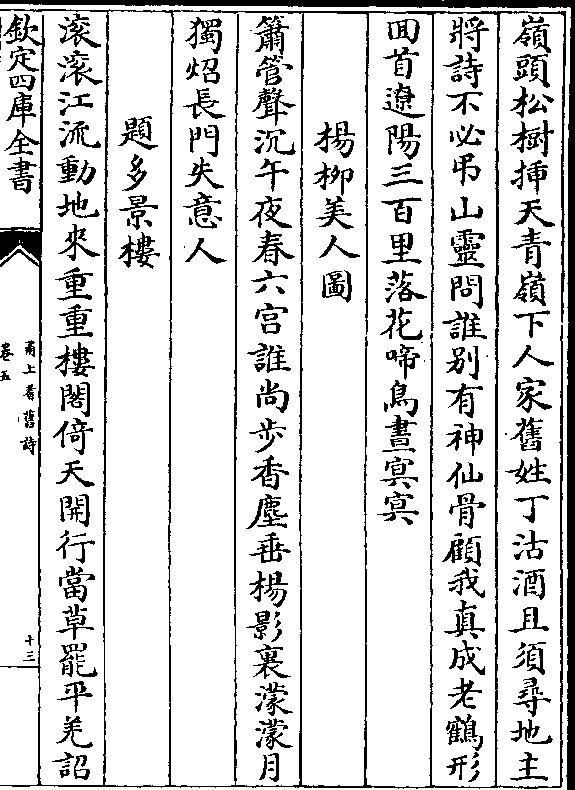 嶺頭松樹揷天青嶺下人家舊姓丁沽酒且須尋地主
將詩不必弔山靈問誰别有神仙骨顧我真成老鶴形
回首遼陽三百里落花啼鳥晝冥冥
楊柳美人圖
簫管聲沉午夜春六宫誰尚步香塵垂楊影裏濛濛月
獨炤長門失意人
題多景樓
滚滚江流動地來重重樓閣倚天開行當草罷平羌詔
欽定四庫全書
甬上耆舊詩
卷五
十三